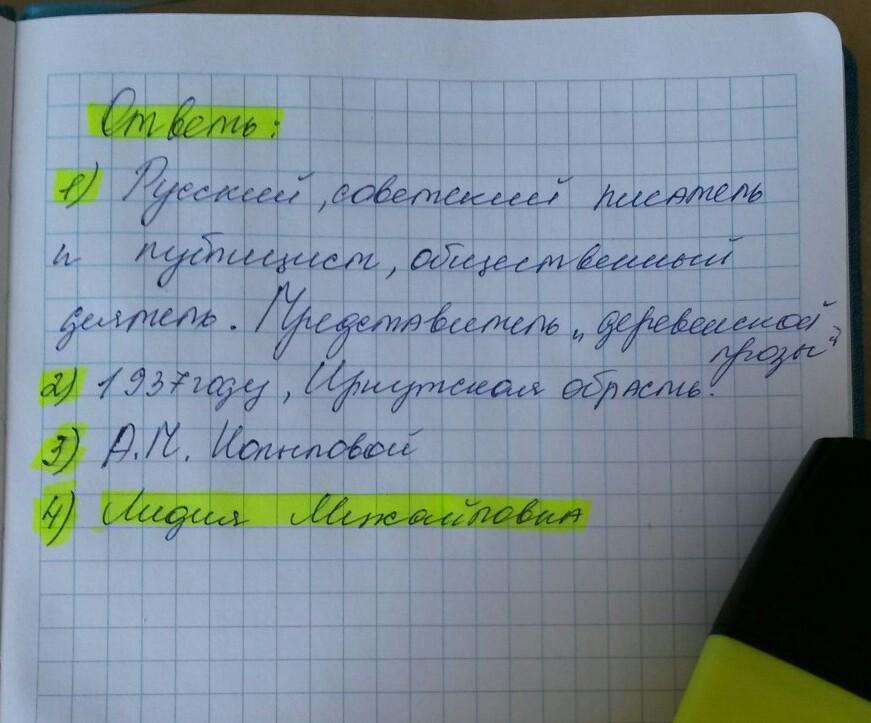 Ответь:
1) Русский, советский писатель
и публицист, общественный
деятель. Представитель „деревенской
прозы"
2) 1937году, Иркутская обрасть.
3) А.П. Копыловой
4) Лидия Михайловна